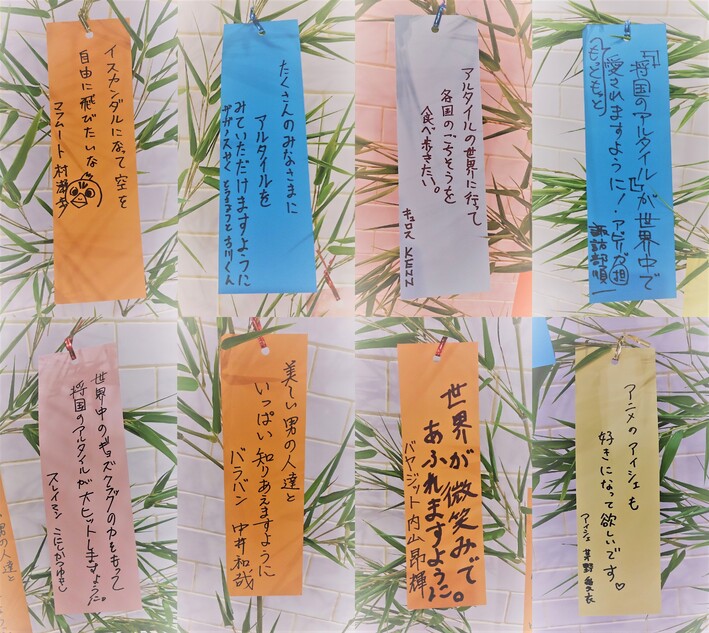 イスカンダルになって空を
自由に飛びたいな
マフムート 村瀬歩
たくさんのみなさまに
アルタイルを
みていただけますように
ザガノスやく
アルタイルの世界に行って
各国のごちそうを
食べ歩きたい。
キュロス KENN
『将国のアルタイル』が世界中で
愛されますように!
もっともっと
諏訪部順一
世界中のギョズクラックの力をもって
将国のアルタイルが大ヒットしますように。
スレイマン こにしかつゆき
美しい男の人達と
いっぱい知りあえますように
バラバン 中井和哉
世界が微笑みで
あふれますように。
バヤジット 内山昂輝
アニメのアイシェも
好きになって欲しいです♡
アイシェ 茅野愛衣
男の人達と